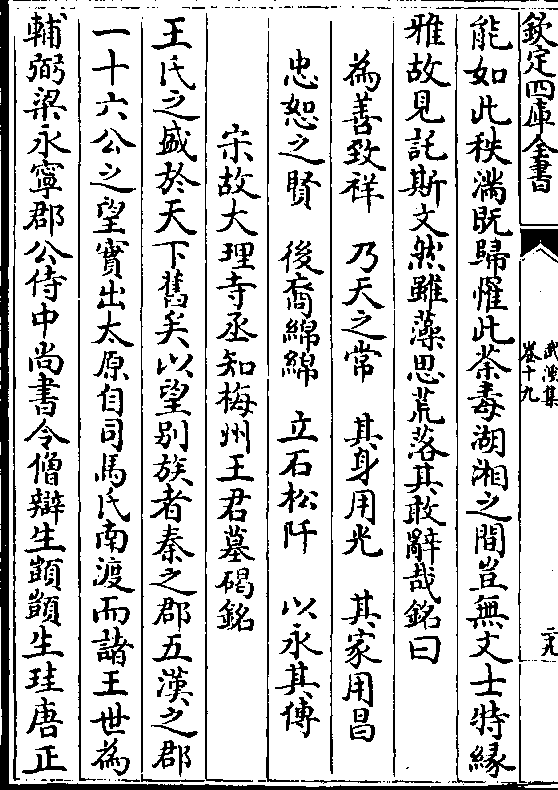 欽定四庫全書
武溪集
卷十九
二九
能如此秩滿既歸罹此荼毒湖湘之間豈無文士特緣
雅故見託斯文然雖藻思荒落其敢辭哉銘曰
為善致祥　乃天之常　其身用光　其家用昌
忠恕之賢　後裔綿綿　立石松阡　以永其傳
宋故大理寺丞知梅州王君墓碣銘
王氏之盛於天下舊矣以望别族者秦之郡五漢之郡
一十六公之望實出太原自司馬氏南渡而諸王世為
輔弼梁永寧郡公侍中尚書令僧辯生顗顗生珪唐正